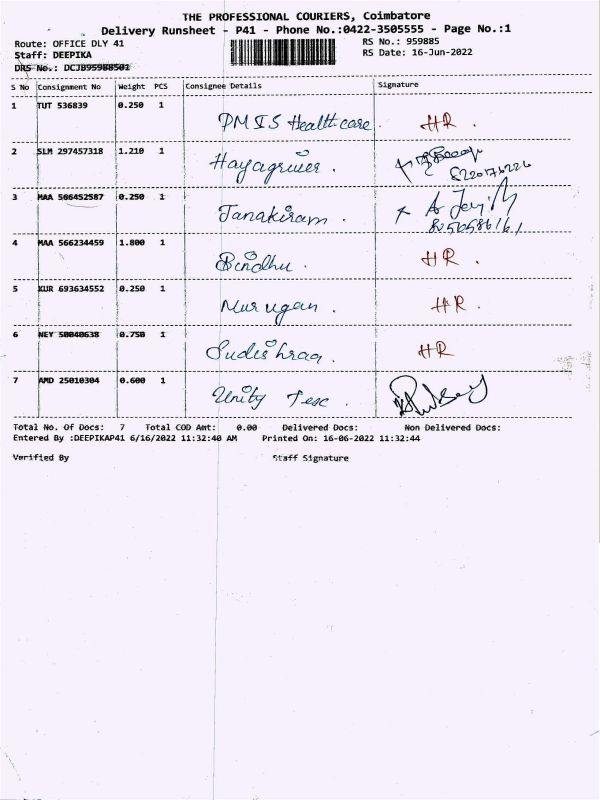 THE PROFESSIONAL COURIERS, Coimbatore
Delivery Runsheet - P41 - Phone No.:0422-3505555 - Page No.:1
Route: OFFICE DLY 41 RS No.: 959885
Staff: DEEPIKA RS Date: 16-Jun-2022
DRS No.:
S No Consignment No Weight PCS Consignee Details Signature
1 TUT 536839 0.250 1 PMIS Healthcare. HR.
2 SLM 297457318 1.210 1 Hayagriver.
3 MAA 566452587 0.250 1 Janakiram.
4 MAA 566234459 1.800 1 Bindhu. HR.
5 KUR 693634552 0.250 1 Murugan. HR.
6 NEY 50040638 0.750 1 HR
7 AMD 25010304 0.600 1 Unity Tesc.
Total No. Of Docs: 7 Total COD Amt: 0.00 Delivered Docs: Non Delivered Docs:
Entered By :DEEPIKAP41 6/16/2022 11:32:40 AM Printed On: 16-06-2022 11:32:44
Verified By Staff Signature